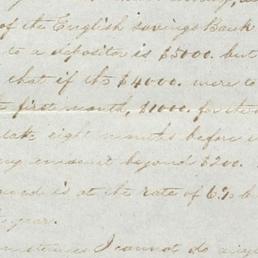 of the English savings Bank
to a depositor is $5000. but
that if the $4000. were to
first month, $1000. for the
take eight months before
amount beyond $200.
is at the rate of 6%
year.
I cannot do